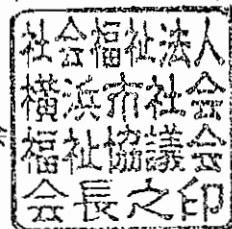 社会福祉法人
横浜市社会
福祉協議会
会長之印